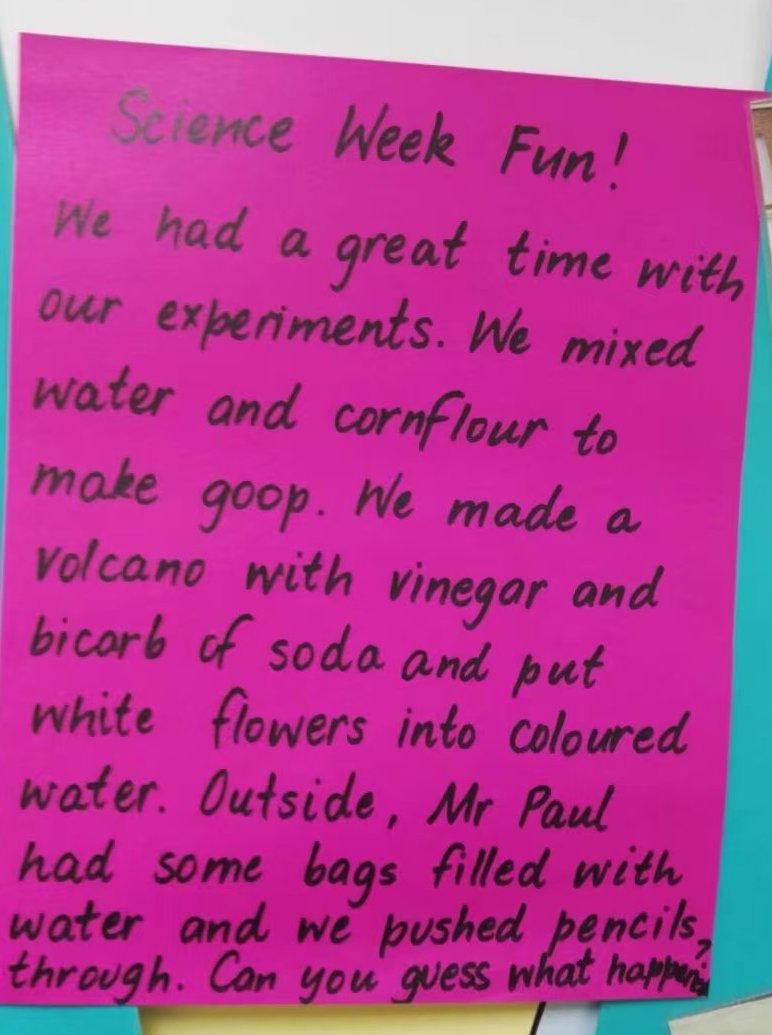 Science Week Fun!
We had a great time with
our experiments. We mixed
water and cornflour to
make goop. We made a
volcano with vinegar and
bicarb of soda and put
white flowers into coloured
water. Outside, Mr Paul
had some bags filled with
water and we pushed pencils
through. Can you guess what